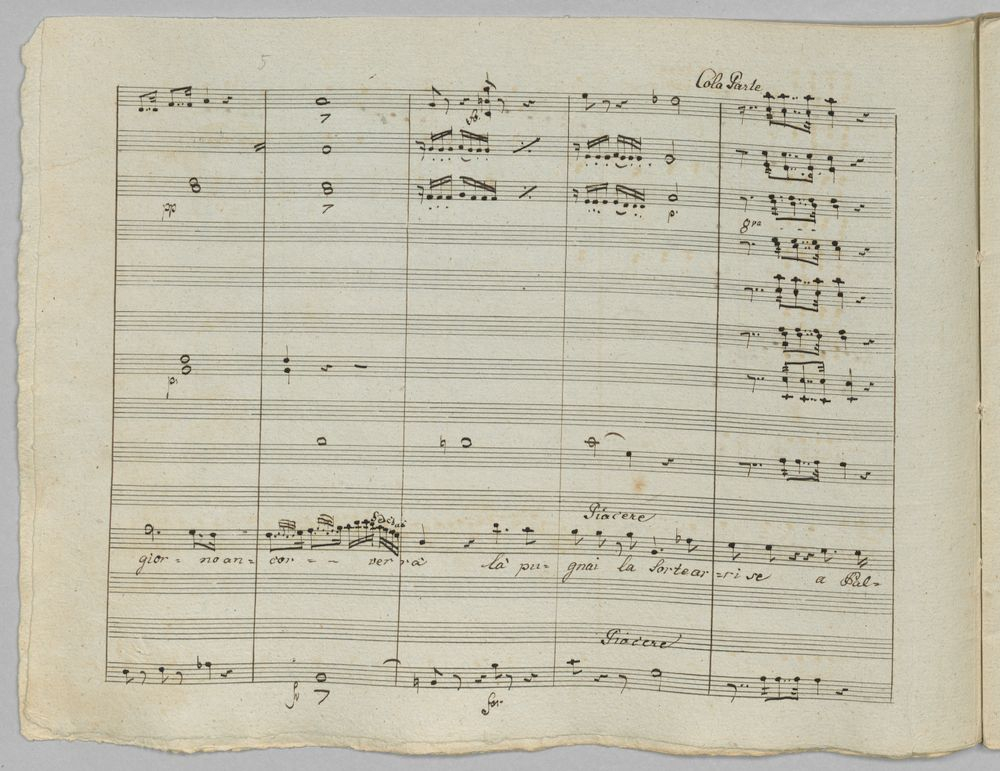 5
Cola Parte
pp
p.
8va
p.
Piacere
gior = no an = cor = - - ver rà là pu = gnai la sorte ar = ri se a Pal =
Piacere
for